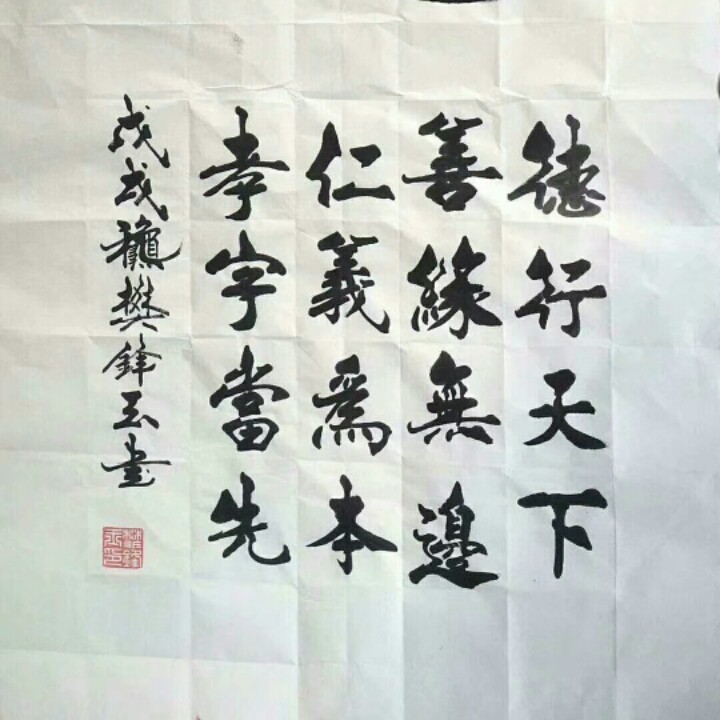 德行天下
善緣無邊
仁義為本
孝字當先
戊戌龝樊鋒玉書